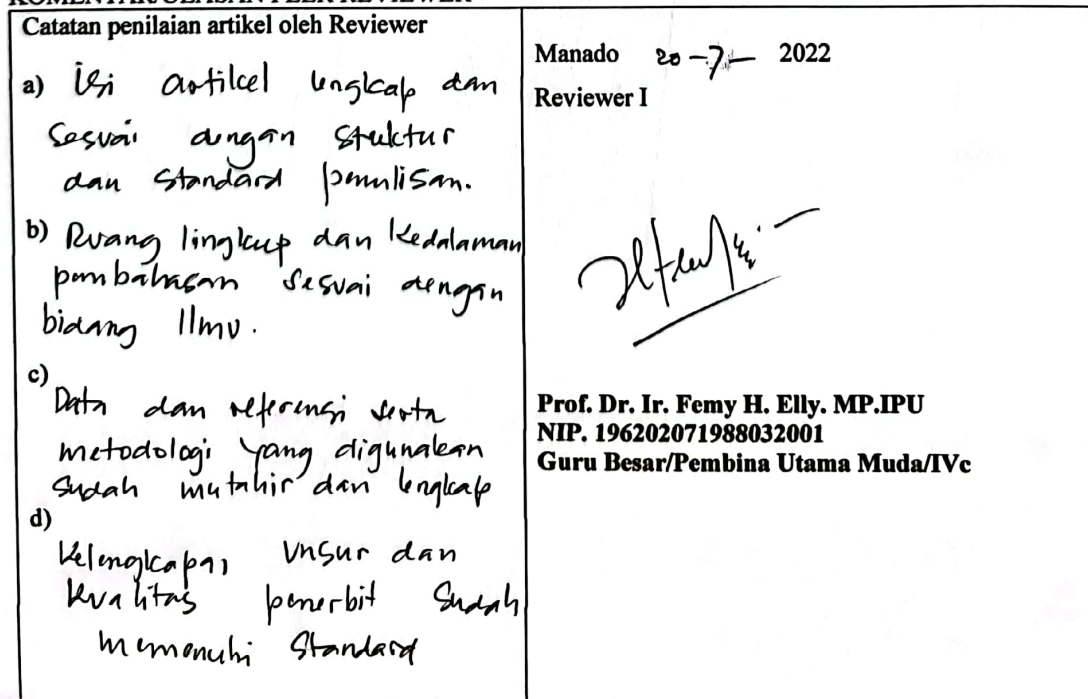 KOMENTAR/ULASAN PEER REVIEWER
Catatan penilaian artikel oleh Reviewer
a) Isi artikel lengkap dan
sesuai dengan struktur
dan standard penulisan.
b) Ruang lingkup dan kedalaman
pembahasan sesuai dengan
bidang Ilmu.
c)
Data dan referensi serta
metodologi yang digunakan
sudah mutahir dan lengkap
d)
Kelengkapan unsur dan
kualitas penerbit sudah
memenuhi standard
Manado 20-7- 2022
Reviewer I
Prof. Dr. Ir. Femy H. Elly. MP.IPU
NIP. 196202071988032001
Guru Besar/Pembina Utama Muda/IVc